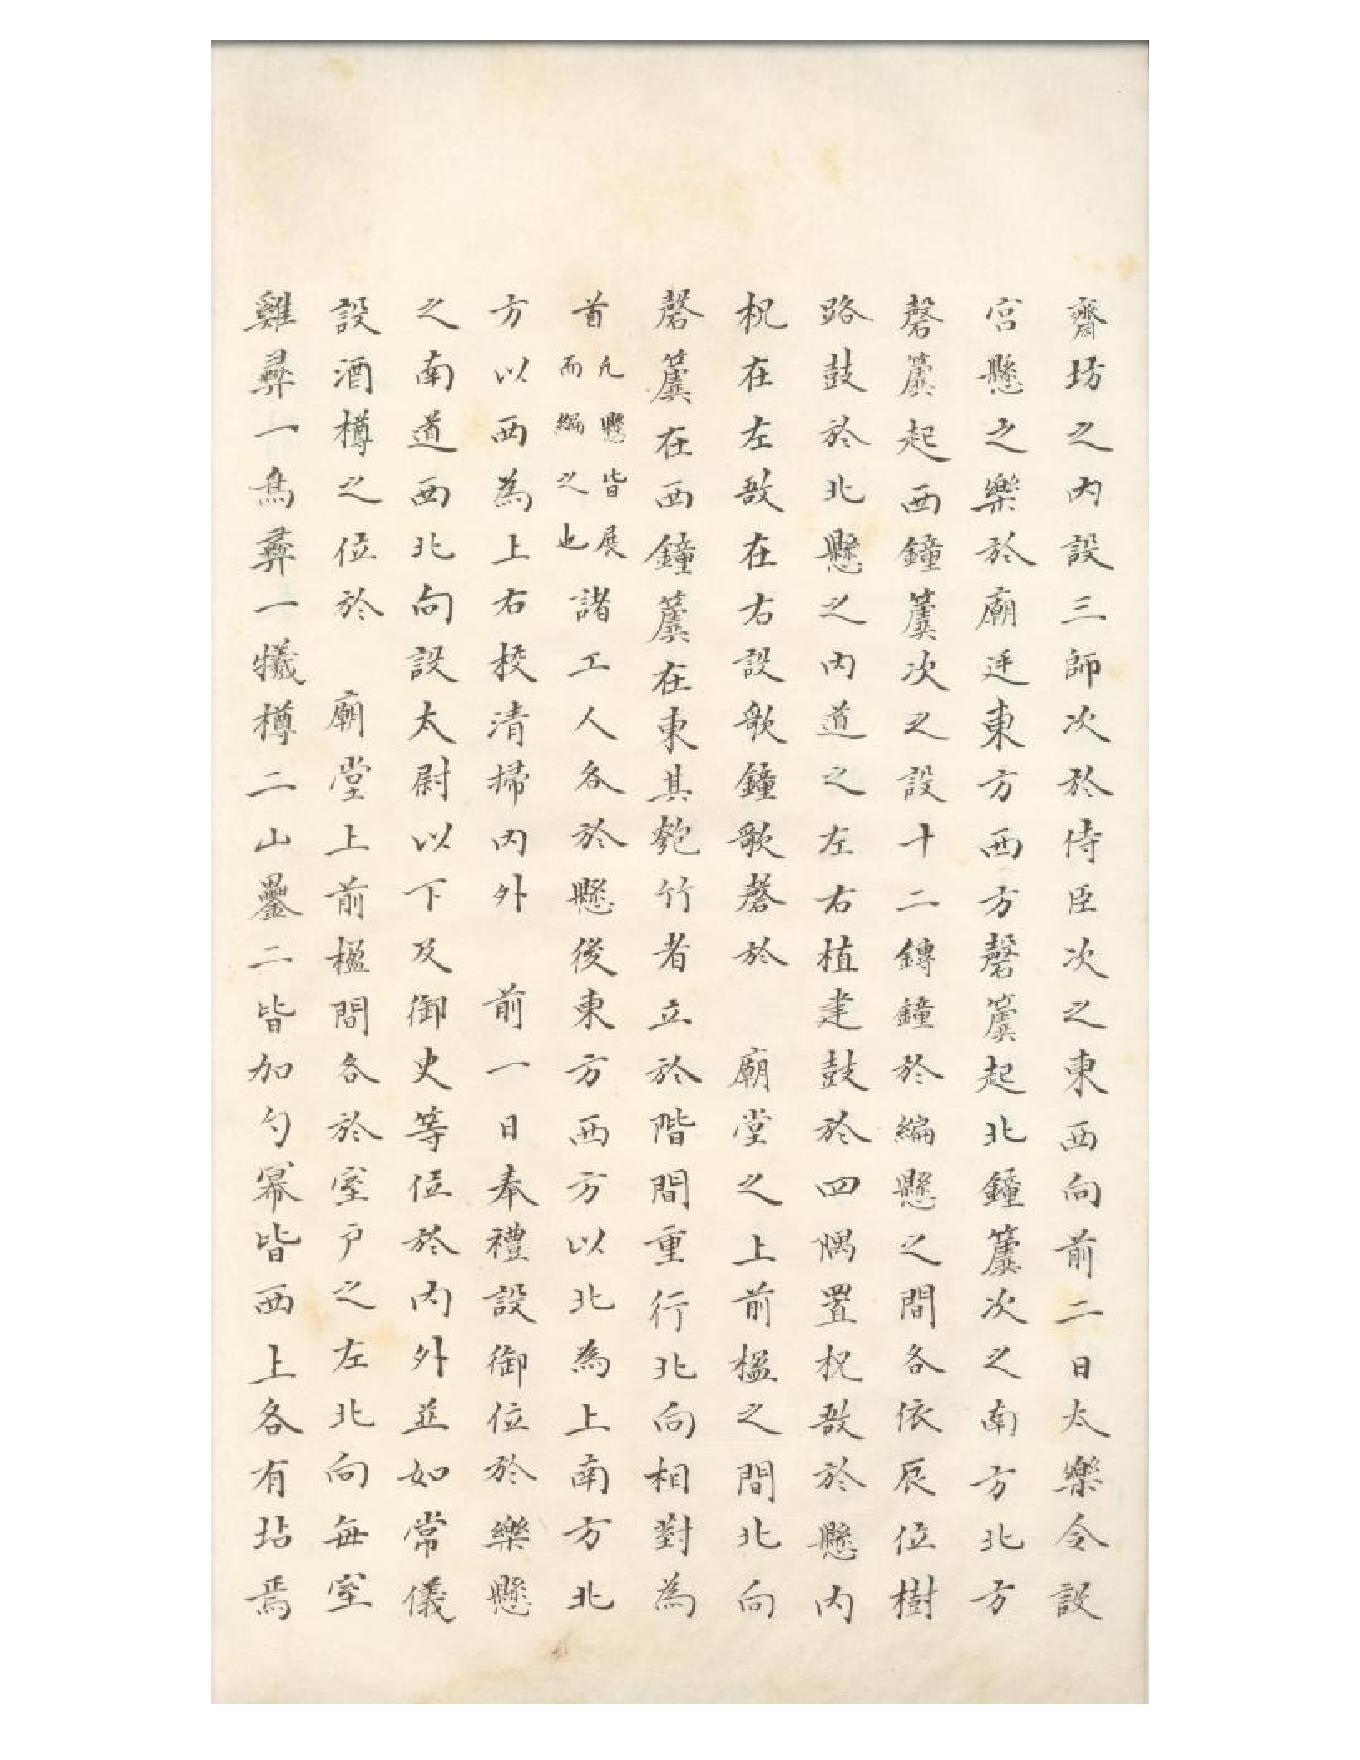 齋坊之內設三師次於侍臣次之東西向前二日太樂令設
宮懸之樂於廟廷東方西方磬簴起北鐘簴次之南方北方
磬簴起西鐘簴次之設十二鎛鐘於編懸之間各依辰位樹
路鼓於北懸之內道之左右植建鼓於四隅置柷敔於懸內
柷在左敔在右設歌鐘歌磬於　廟堂之上前楹之間北向
磬簴在西鐘簴在東其匏竹者立於階間重行北向相對為
首凡懸皆展而編之也諸工人各於懸後東方西方以北為上南方北
方以西為上右校清掃內外　前一日奉禮設御位於樂懸
之南道西北向設太尉以下及御史等位於內外並如常儀
設酒樽之位於　廟堂上前楹間各於室戶之左北向每室
雞彝一鳥彝一犧樽二山罍二皆加勺冪皆西上各有坫焉